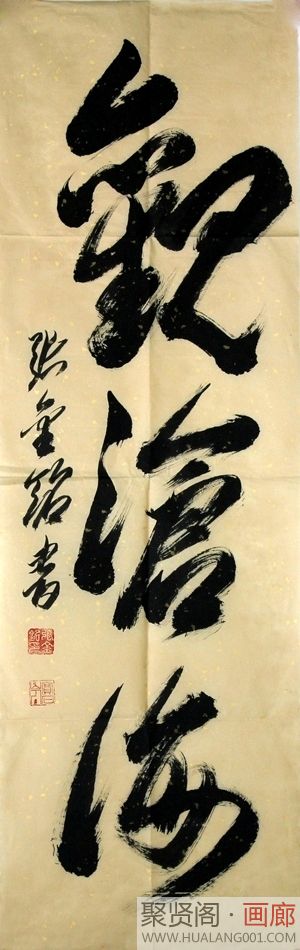 觀滄海
張金銘書
聚贤阁·画廊
WWW.HUALANG001.COM